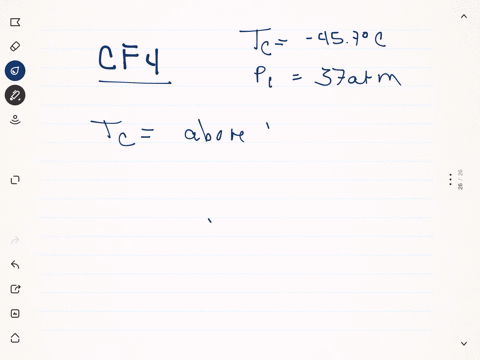 CF4
Tc = -45.7°C
Pc = 37atm
Tc = above
26 / 26